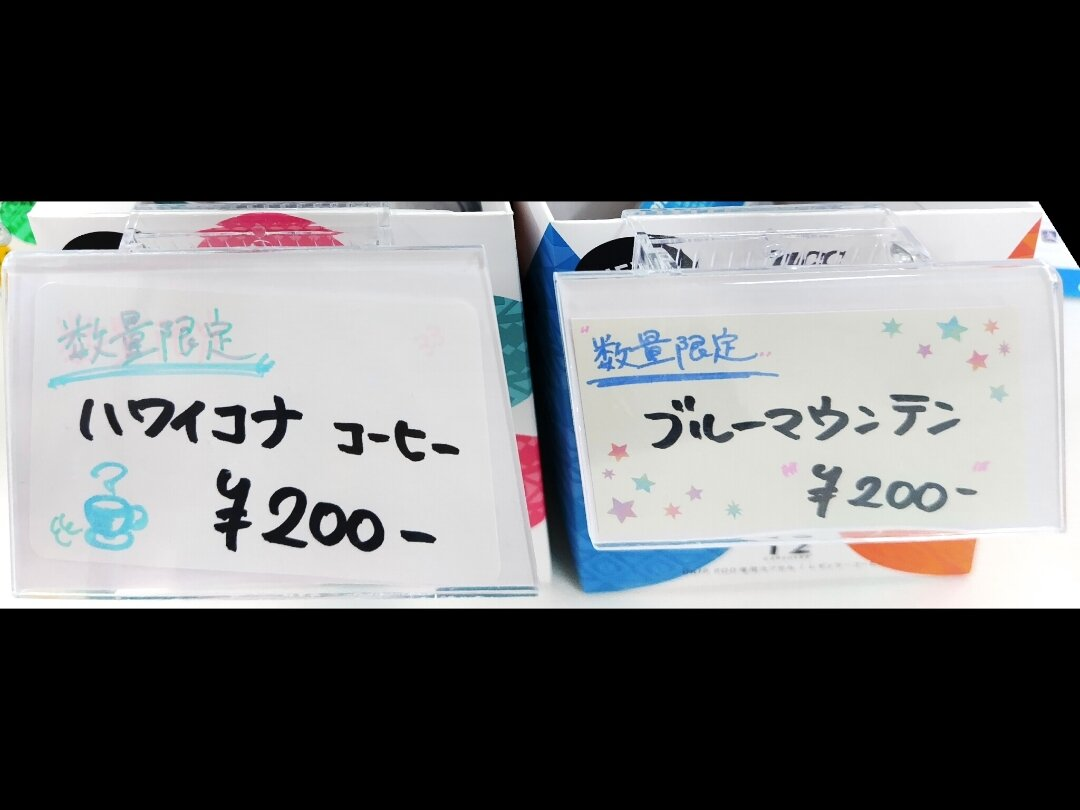 数量限定
ハワイコナ コーヒー
¥200-
"数量限定"
ブルーマウンテン
"¥200-"
12